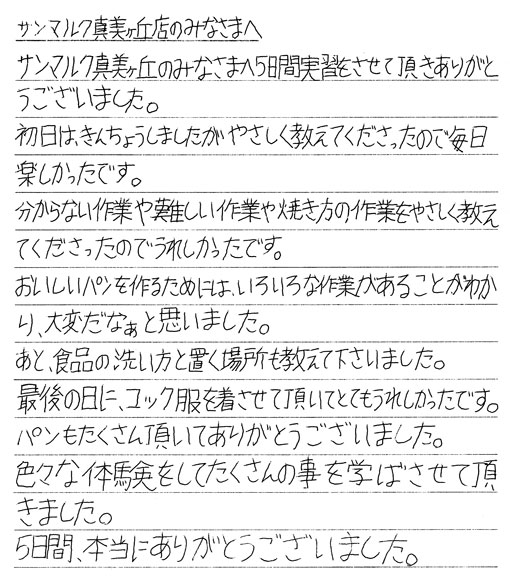 サンマルク真美ヶ丘店のみなさまへ
サンマルク真美ヶ丘のみなさまへ5日間実習をさせて頂きありがと
うございました。
初日は、きんちょうしましたがやさしく教えてくださったので毎日
楽しかったです。
分からない作業や難しい作業や焼き方の作業をやさしく教え
てくださったのでうれしかったです。
おいしいパンを作るためには、いろいろな作業があることがわか
り、大変だなぁと思いました。
あと、食品の洗い方と置く場所も教えて下さいました。
最後の日に、コック服を着させて頂いてとてもうれしかったです。
パンもたくさん頂いてありがとうございました。
色々な体験をしてたくさんの事を学ばさせて頂
きました。
5日間、本当にありがとうございました。